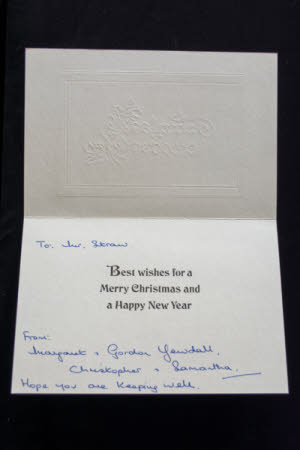 To: Mr. Straw
Best wishes for a
Merry Christmas and
a Happy New Year
From:
Margaret & Gordon Yewdall,
Christopher & Samantha.
Hope you are keeping well.